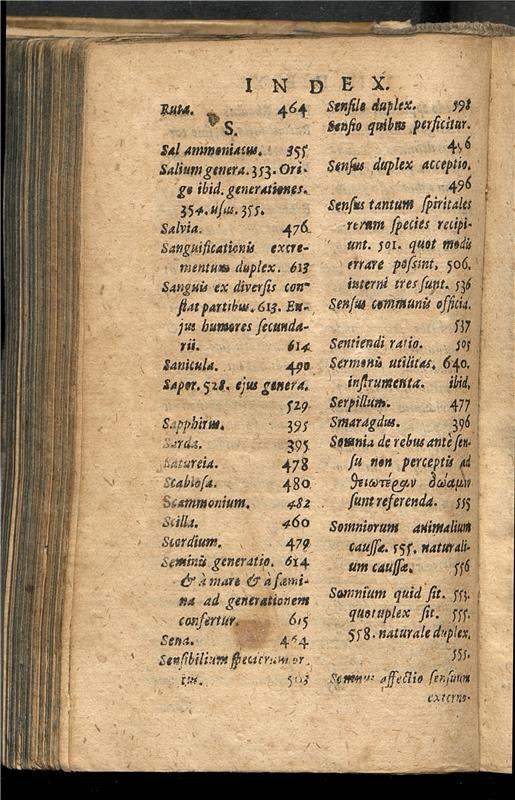 INDEX.
Rutæ. 464
S.
Sal ammoniacus. 355
Salium genera. 353. Ori-
go ibid. generationes.
354. usus. 355.
Salvia. 476
Sanguificationis excre-
mentum duplex. 613
Sanguis ex diversis con-
stat partibus. 613. Eu-
jus humores secunda-
rii. 614
Sanicula. 490
Sapor. 528. ejus genera.
529
Sapphirus. 395
Sarda. 395
Satureia. 478
Scabiosa. 480
Scammonium. 482
Scilla. 460
Scordium. 479
Seminis generatio. 614
& à mare & à fœmi-
na ad generationem
confertur. 615
Sena. 464
Sensibilium specierum or-
tus. 503
Sensile duplex. 598
Sensio quibus perficitur.
496
Sensus duplex acceptio.
496
Sensus tantum spiritales
rerum species recipi-
unt. 501. quot modis
errare possint, 506.
interni tres sunt. 536
Sensus communis officia.
537
Sentiendi ratio. 505
Sermonis utilitas. 640.
instrumenta. ibid.
Serpillum. 477
Smaragdus. 396
Somnia de rebus antè sen-
su non perceptis ad
θειωτέραν δύαμιν
sunt referenda. 555
Somniorum animalium
caussæ. 555. naturali-
um caussæ. 556
Somnium quid sit. 553.
quotuplex sit. 555.
558. naturale duplex.
555.
Somnus affectio sensuum
externo-